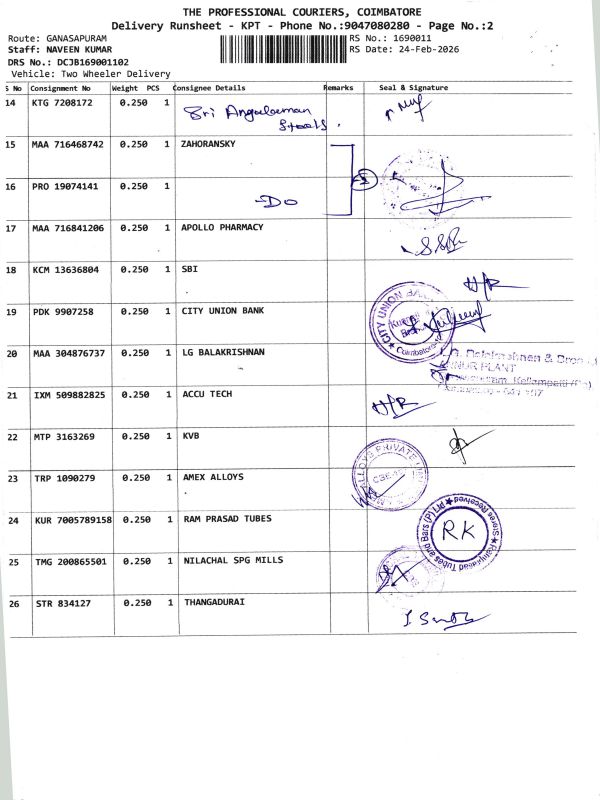 THE PROFESSIONAL COURIERS, COIMBATORE
Delivery Runsheet - KPT - Phone No.:9047080280 - Page No.:2
Route: GANASAPURAM RS No.: 1690011
Staff: NAVEEN KUMAR RS Date: 24-Feb-2026
DRS No.: DCJB169001102
Vehicle: Two Wheeler Delivery
S No Consignment No Weight PCS Consignee Details Remarks Seal & Signature
14 KTG 7208172 0.250 1 Sri Angalaman
Steels.
15 MAA 716468742 0.250 1 ZAHORANSKY
16 PRO 19074141 0.250 1 -DO
17 MAA 716841206 0.250 1 APOLLO PHARMACY
18 KCM 13636804 0.250 1 SBI
H/R
19 PDK 9907258 0.250 1 CITY UNION BANK CITY UNION BANK Coimbatore
20 MAA 304876737 0.250 1 LG BALAKRISHNAN Balakrishnan & Bros
PLANT
21 IXM 509882825 0.250 1 ACCU TECH H/R
22 MTP 3163269 0.250 1 KVB
23 TRP 1090279 0.250 1 AMEX ALLOYS ALLOYS PRIVATE
24 KUR 7005789158 0.250 1 RAM PRASAD TUBES RK Tubes and Bars (P) Ltd Stores Received
25 TMG 200865501 0.250 1 NILACHAL SPG MILLS
26 STR 834127 0.250 1 THANGADURAI